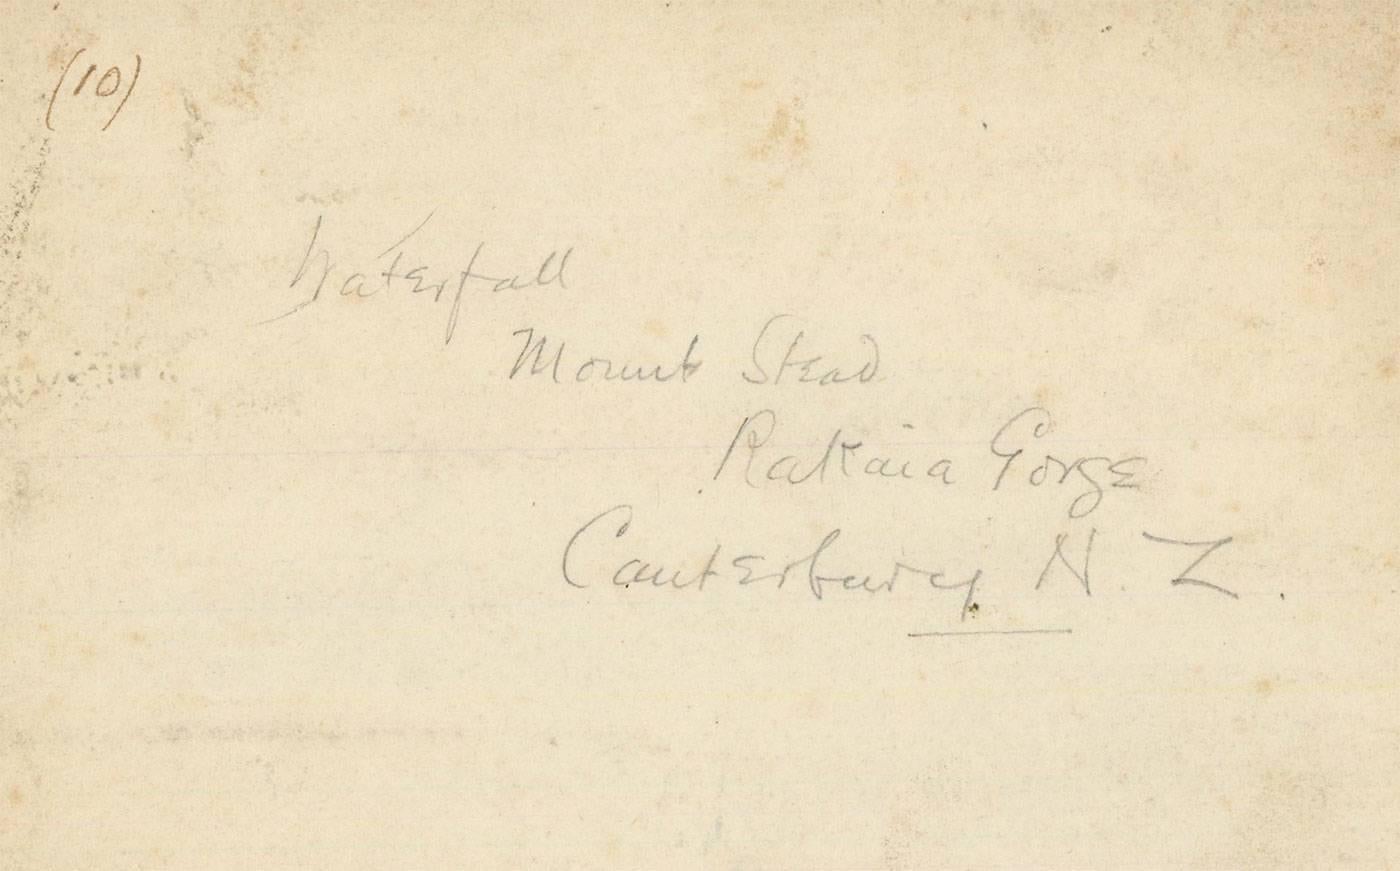 (10)
Waterfall
Mount Stead
Rakaia Gorge
Canterbury N. Z.